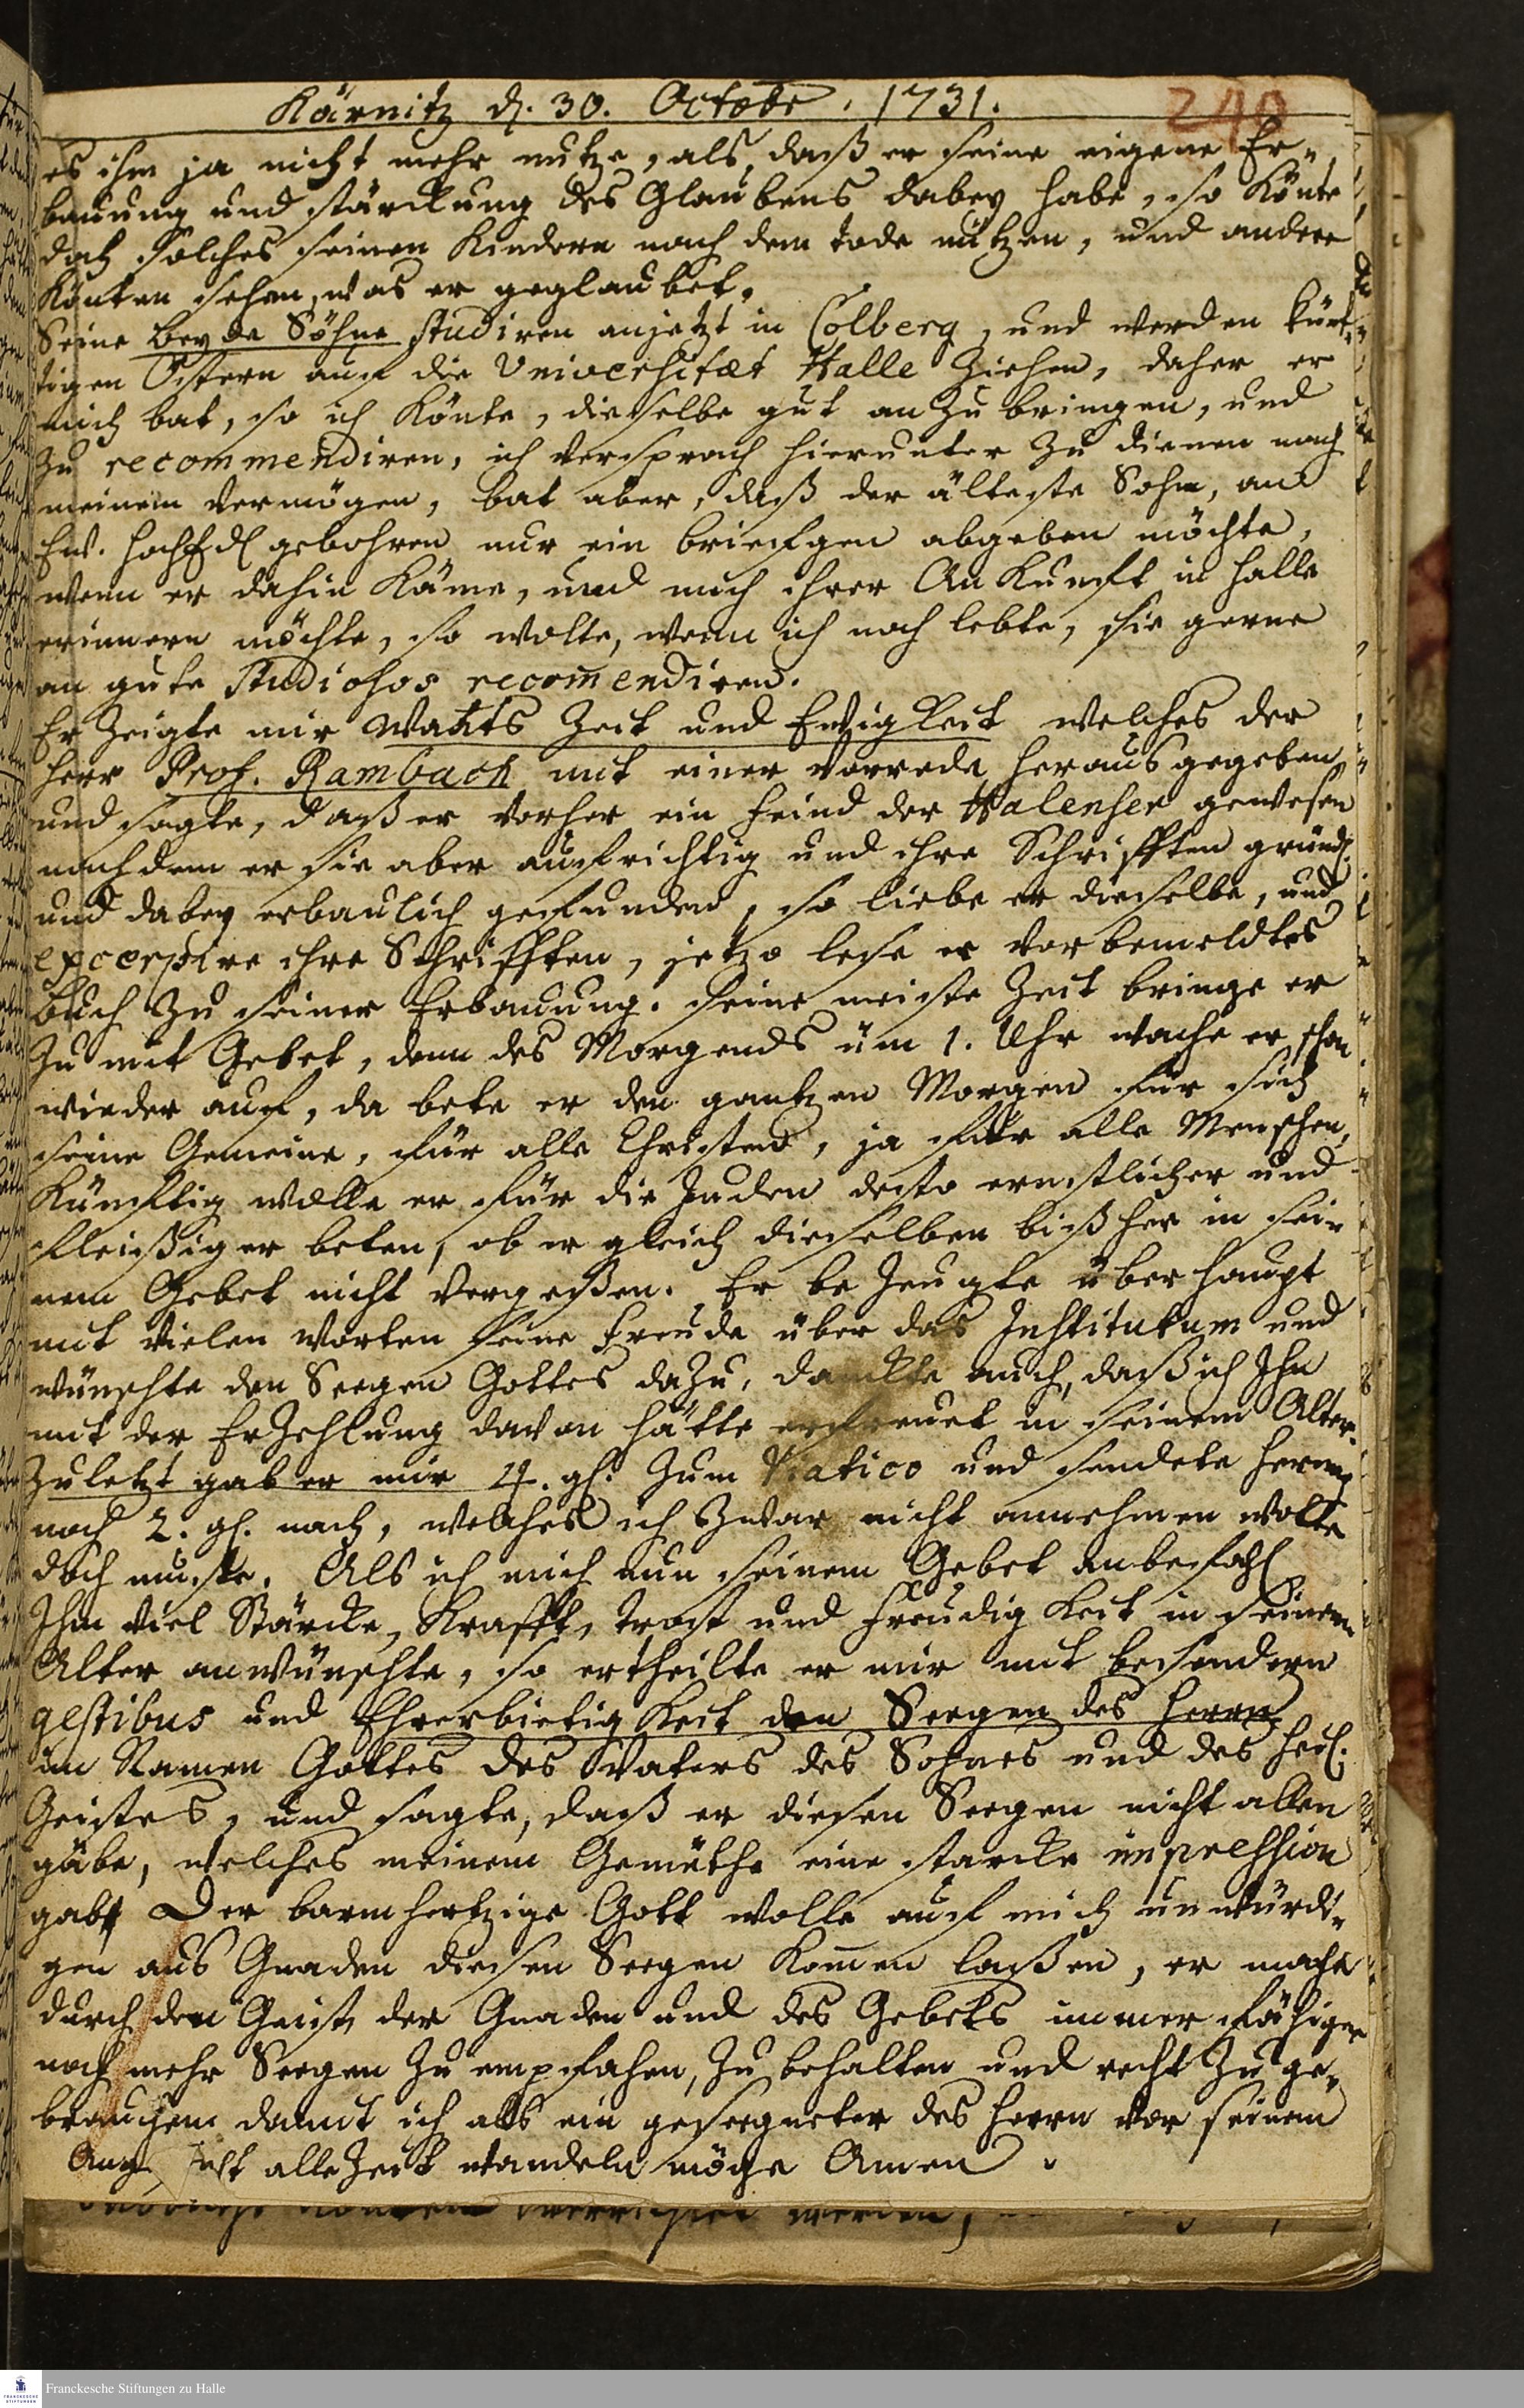 Kärnitz d. 30. Octobr. 1731.
240
es ihm ja nicht mehr nutze, als, daß er seine eigene Er-
bauung und stärckung des Glaubens dabey habe, so könte
doch solches seinen Kindern nach dem tode nutzen, und andere
könten sehen, was er geglaubet.
Seine beyde Söhne studiren anjetzt in Colberg, und werden künf-
tigen Ostern auf die Universitæt Halle Ziehen, daher er
mich bat, so ich könte, dieselbe gut an zu bringen, und
zu recommendiren, ich versprach hierunter zu dienen nach
meinem vermögen, bat aber, daß der älteste Sohn, an
Ew. hochEdl gebohren nur ein briefgen abgeben möchte,
wenn er dahin käme, und mich ihrer Ankunft in Halle
erinnern möchte, so wolte, wenn ich noch lebte, sie gerne
an gute Studiosos recom̅endiren.
Er Zeigte mir Watzts Zeit und Ewigkeit welches der
Herr Prof. Rambach mit einer vorrede herausgegeben
und sagte, daß er vorher ein feind der Halenser gewesen
nachdem er sie aber aufrichtig und ihre Schrifften gründl.
und dabey erbaulich gefunden, so liebe er dieselbe, und
excerpire ihre Schrifften, jetzo lese er vorbemeldtes
buch zu seiner Erbauung. seine meiste Zeit bringe er
zu mit Gebet, denn des Morgends üm 1. Uhr wache er schon
wieder auf, da bete er den gantzen Morgen für sich
seine Gemeine, für alle Christen, ja für alle Menschen,
Künfftig wolle er für die Juden desto ernstlicher und
fleißiger beten, ob er gleich dieselben bißher in sei-
nem Gebet nicht vergeßen. Er bezeugte überhaupt
mit vielen worten seine freude über das Institutum und
wünschte den Seegen Gottes dazu, danckte auch, daß ich Ihn
mit der Erzehlung davon hätte erfreuet in seinem Alter.
Zuletzt gab er mir 4. gl. zum Viatico und sendete hernach
noch 2. gl. nach, welches ich zwar nicht annehmen wolte
doch muste. Als ich mich nun seinem Gebet anbefahl
Ihm viel Stärcke, Krafft, trost und freudigkeit in seinem
Alter anwünschte, so ertheilte er mir mit besondern
gestibus und Ehrerbietigkeit den Seegen des Herrn
im Namen Gottes des Vaters des Sohnes und des heil.
Geistes, und sagte, daß er diesen Seegen nicht allen
gäbe, welches meinem Gemüthe eine starcke impression
gab. Der barmhertzige Gott wolle auf mich unwürdi-
gen aus Gnaden diesen Seegen kom̅en laßen, er mache
durch den Geist der Gnaden und des Gebets immer fähiger
noch mehr Seegen zu empfahen, zu behalten und recht zu ge-
brauchen damit ich als ein geseegneter des Herrn vor seinem
Ang. allezeit wandeln möge Amen.
werden,
Franckesche Stiftungen zu Halle